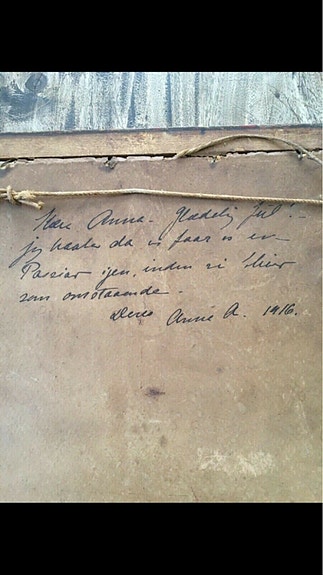 Kære Anna - Glædelig Jul! -
jeg haaber da vi faar os en
Passiar igen, inden vi bliver
som omstaaende -
Deres Anna A. 1916.